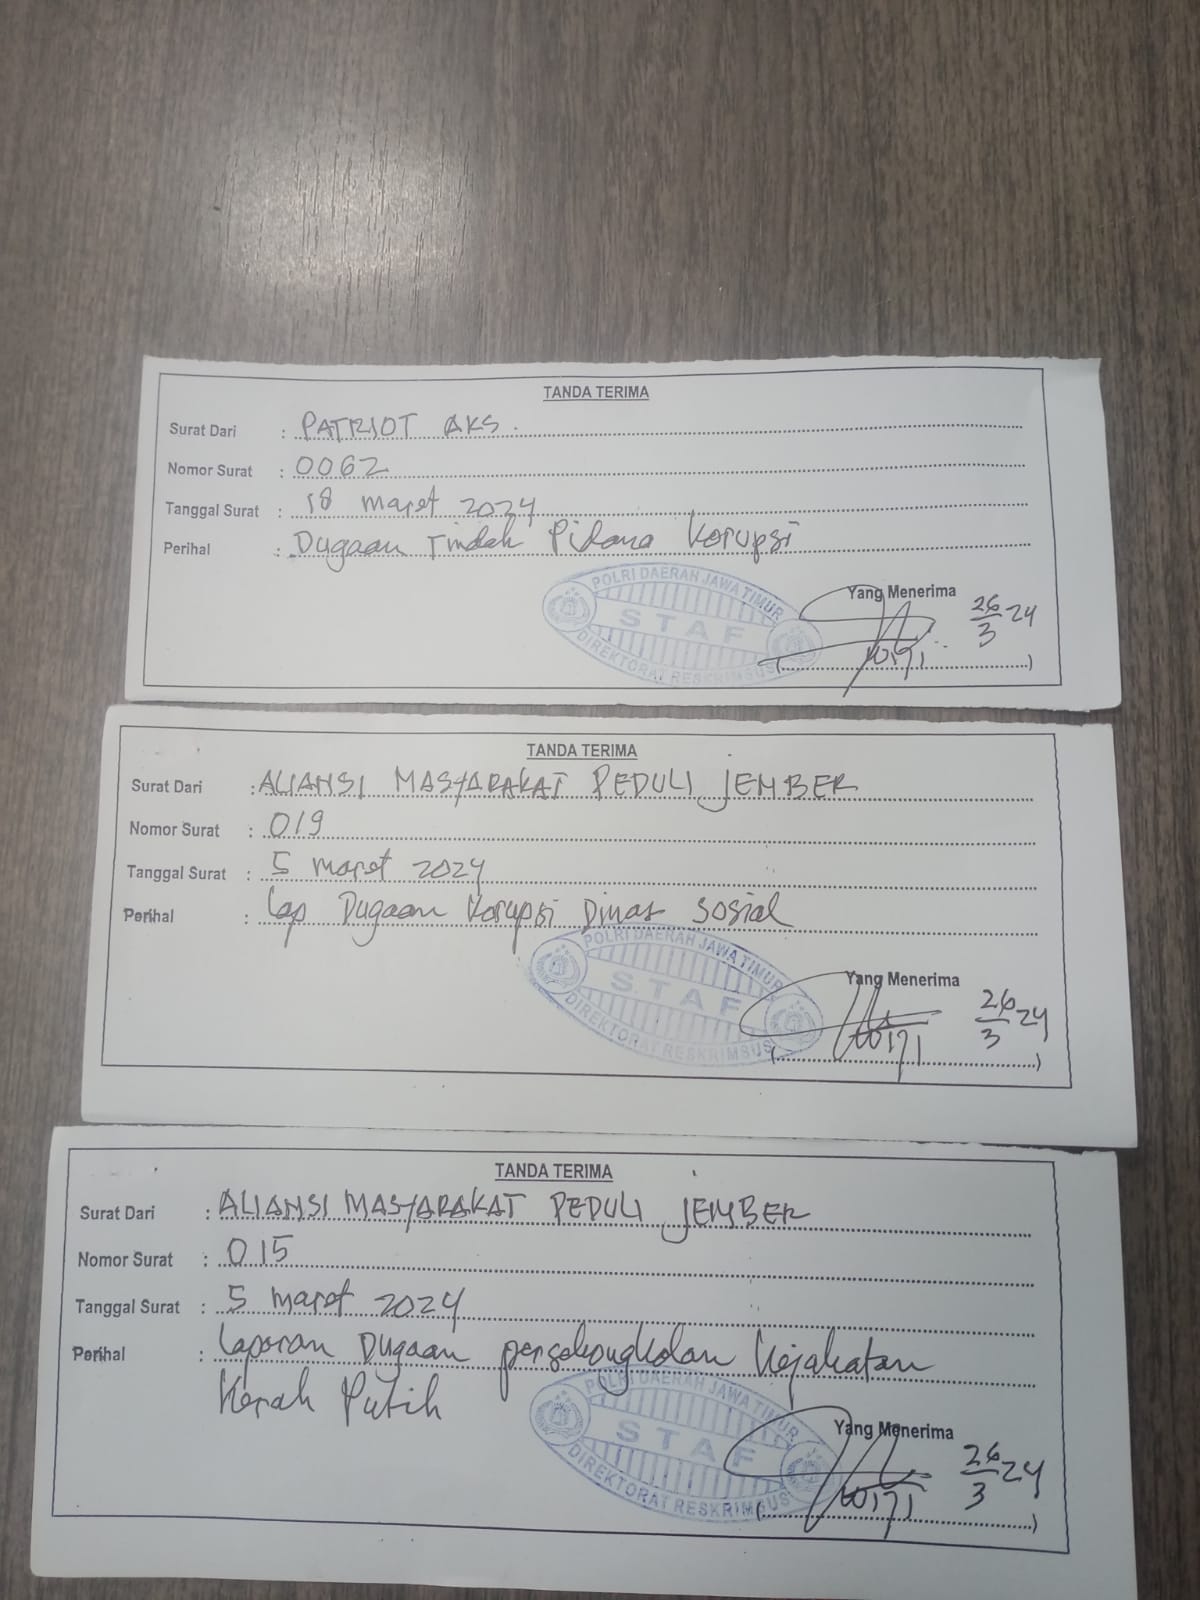 TANDA TERIMA
Surat Dari : PATRIOT AKS.
Nomor Surat : 0062
Tanggal Surat : 18 maret 2024
Perihal : Dugaan Tindak Pidana Korupsi
POLRI DAERAH JAWA TIMUR
STAF
DIREKTORAT RESKRIMSUS
Yang Menerima
26/3 24
(..........)
TANDA TERIMA
Surat Dari : ALIANSI MASYARAKAT PEDULI JEMBER
Nomor Surat : 019
Tanggal Surat : 5 maret 2024
Perihal : Lap Dugaan Korupsi Dinas Sosial
POLRI DAERAH JAWA TIMUR
STAF
DIREKTORAT RESKRIMSUS
Yang Menerima
26/3 24
(..........)
TANDA TERIMA
Surat Dari : ALIANSI MASYARAKAT PEDULI JEMBER
Nomor Surat : 015
Tanggal Surat : 5 maret 2024
Perihal : Laporan Dugaan persekongkolan Kejahatan
Kerah Putih
POLRI DAERAH JAWA TIMUR
STAF
DIREKTORAT RESKRIMSUS
Yang Menerima
26/3 24
(..........)